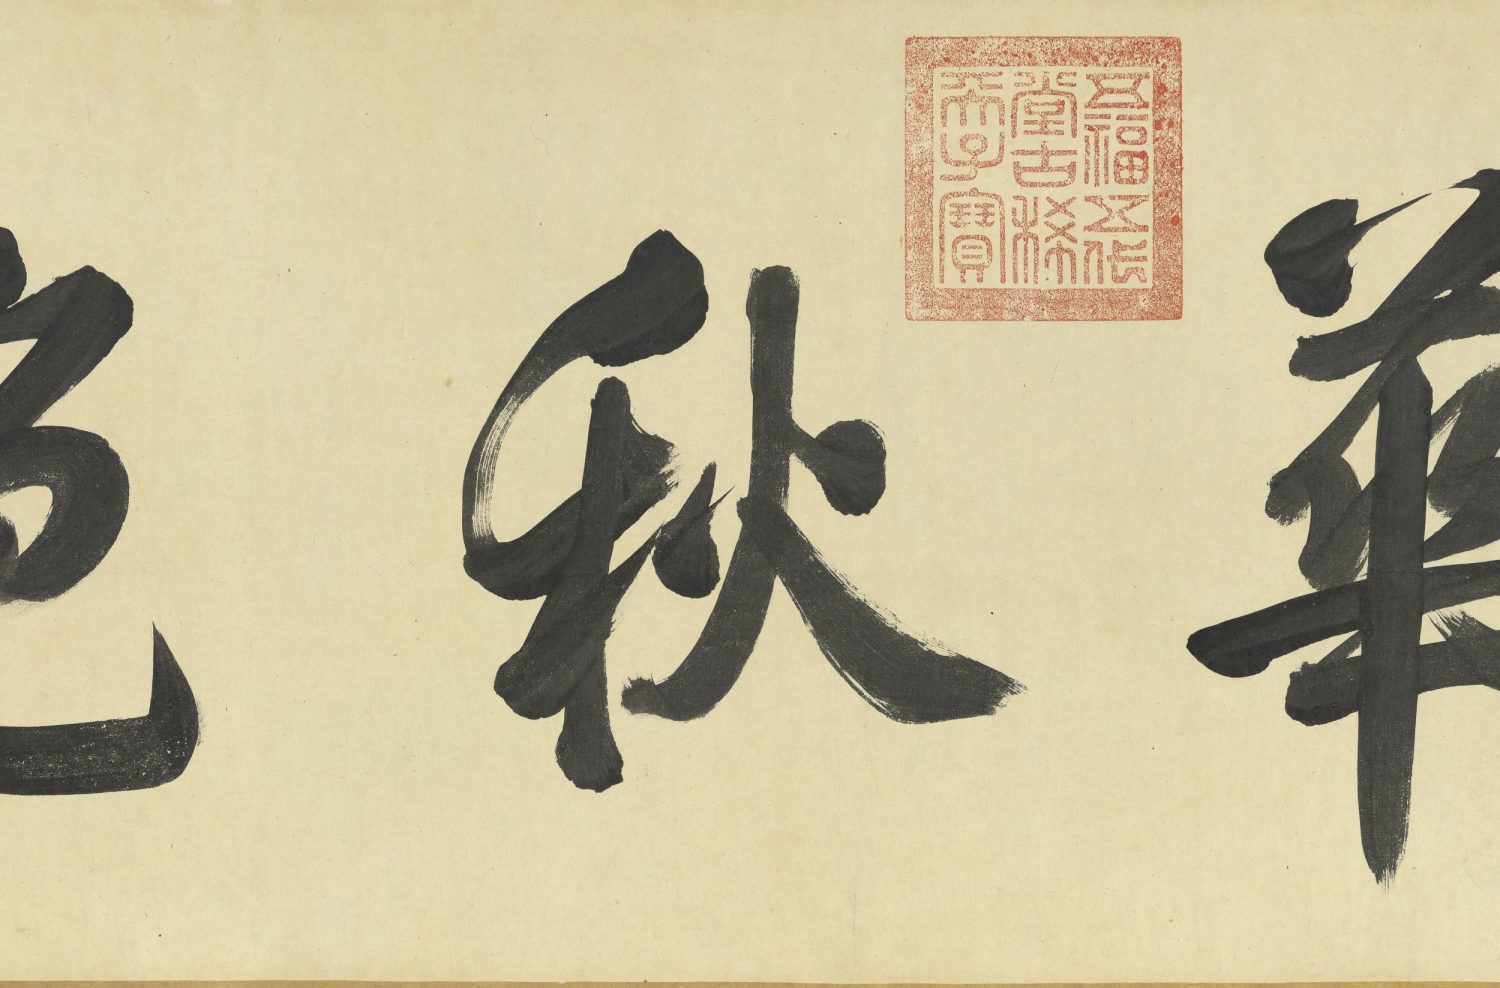 華秋色
五福五代
堂古稀
天子寶